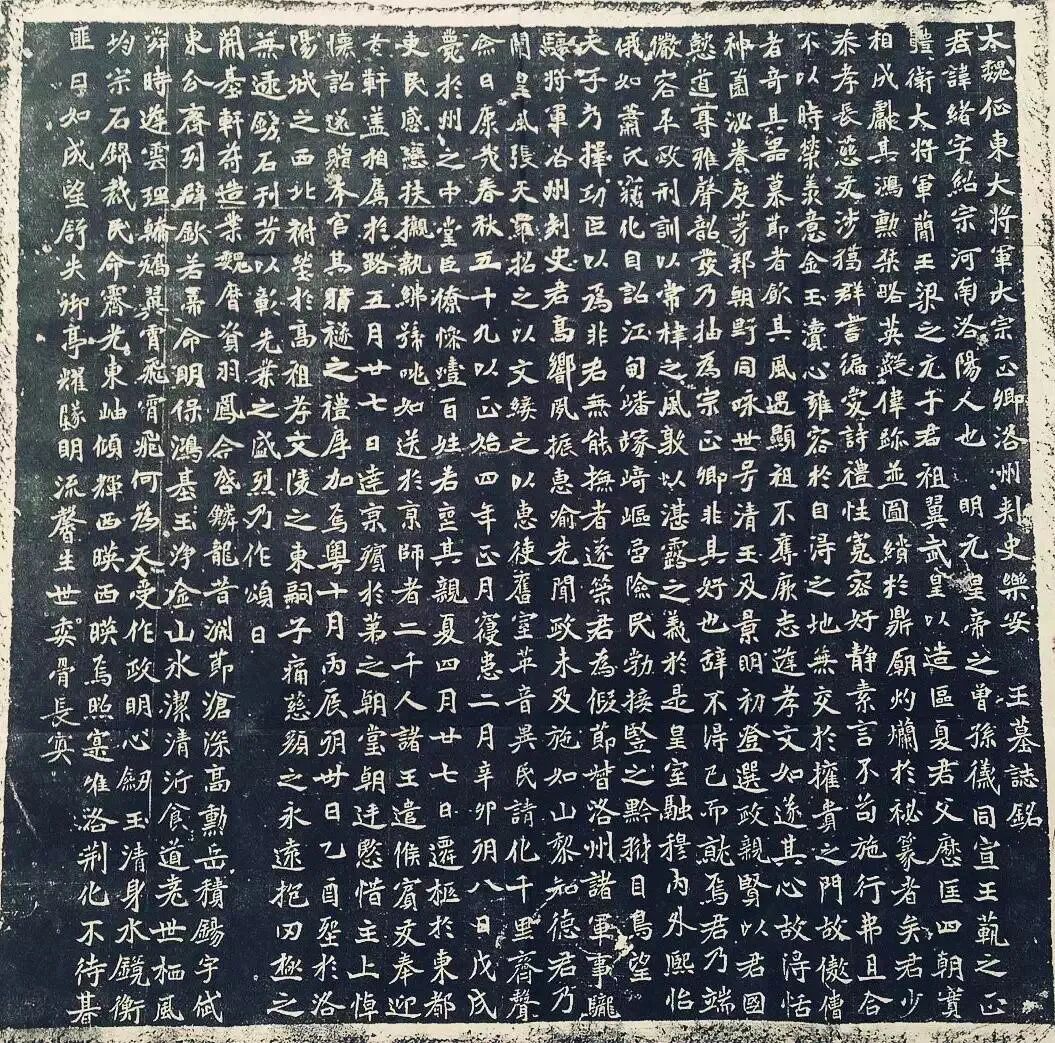 大魏征東大將軍大宗正卿洛州刾史樂安王墓誌銘
君諱緒字紹宗河南洛陽人也明元皇帝之曾孫儀同宣王範之正
體衛大將軍簡王梁之元子君祖翼武皇以造區夏君父歷匡四朝寔
相成獻其鴻勲桀略英蹤偉跡並圖繢於鼎廟灼爛於秘篆者矣君少
恭孝長慈友涉獦群書徧愛詩禮性寬密好靜素言不苟施行弗且合
不以時榮羨意金玉瀆心雍容於自得之地無交於權貴之門故傲僧
者奇其器慕節者飲其風遇顯祖不奪廉志遊孝文如遂其心故得恬
神園泌養度茅邦朝野同咏世号清王及景明初登選政親賢以君國
懿道尊雅聲韶發乃抽為宗正卿非其好也辞不得已而就焉君乃端
儼容平政刑訓以常棣之風敦以湛露之義於是皇室融穆內外熙怡
俄如蕭氏竊化自詔江旬嶓塚崎嶇負險民勃接竪之黔掛目鳥望
夫子乃擇功臣以為非君無能撫者遂策君為假節督洛州諸軍事驪
驤將軍洛州刾史君高嚮夙振惠喻先聞政未及施如山黎知德君乃
開皇風張天羅招之以文綏之以惠使舊室革音異民請化千里齊聲
僉曰康哉春秋五十九以正始四年正月寑患二月辛卯朔八日戊戌
薨於州之中堂臣僚悰噎百姓若喪其親夏四月廿七日遷柩於東都
吏民感戀扶櫬執紼號咷如送於京師者二千人諸王遣候賓交奉迎
軒蓋相属於路五月廿七日達京殯於第之朝堂朝廷愍惜主上悼
懷詔遂贈本官其賵襚之禮厚加焉粵十月丙辰朔卅日乙酉窆於洛
陽城之西北祔塋於高祖孝文陵之東嗣子痛慈顏之永遠抱罔極之
無逮鐫石刊芳以彰先業之盛烈乃作頌曰
開基軒符造業魏曆資羽鳳今啓鱗龍昔淵節滄深高勲岳積錫宇栻
東分齊列辟欽若帝命明保鴻基玉淨金山水潔清沂食道耄世栖風
舜時遊雲理輪矯翼霄飛霄飛何為天受作政明心劒玉清身水鏡衡
均宗石錦裁民命霽光東岫傾輝西暎西暎焉照寔惟洛荊化不待朞
匪日如成望舒失御亭耀隊明流馨生世委骨長冥